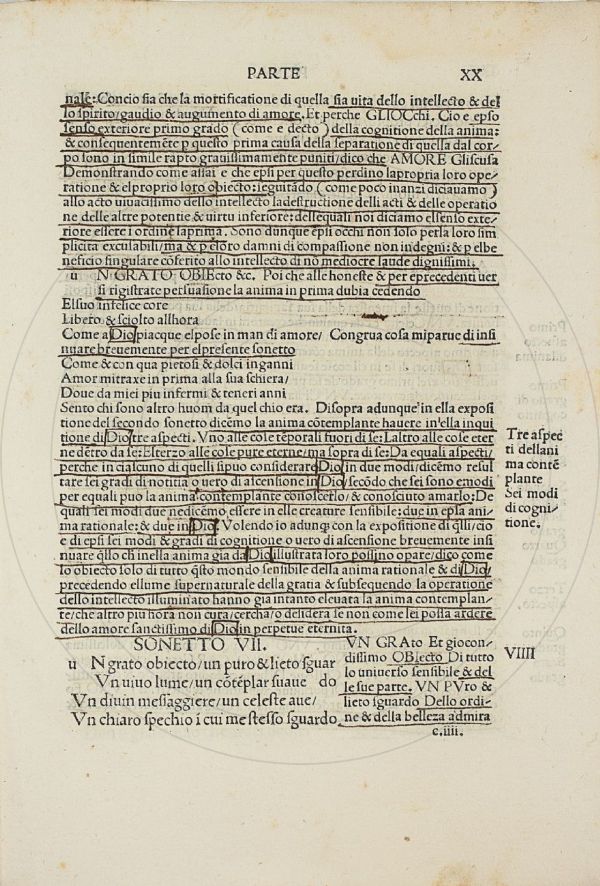 PARTE XX
nale: Concio sia che la mortificatione di quella sia uita dello intellecto & del
lo spirito/gaudio & augumento di amore. Et perche GLIOCchi. Cio e epso
senso exteriore primo grado (come e decto) della cognitione della anima:
& consequentemēte p questo prima causa della separatione di quella dal cor
po sono in simile rapto grauissimamente puniti/dico che AMORE Gliscusa
Demonstrando come assai e che epsi per questo perdino lapropria loro ope-
ratione & elproprio loro obiecto: seguitādo (come poco inanzi diciauamo)
allo acto uiuacissimo dello intellecto ladestructione delli acti & delle operatio
ne delle altre potentie & uirtu inferiore: dellequali noi diciamo elsenso exte-
riore essere ī ordine laprima. Sono dunque epsi occhi non solo perla loro sim
plicita excusabili/ma & p elōro damni di compassione non indegni: & p elbe
neficio singulare cōferito allo intellecto di nō mediocre laude dignissimi.
u N GRATO OBIEcto &c. Poi che alle honeste & per eprecedenti uer
si rigistrate persuasione la anima in prima dubia cedendo
Elsuo infelice core
Libero & sciolto allhora
Come a Dio piacque elpose in man di amore/ Congrua cosa miparue di insi
nuare breuemente per elpresente sonetto
Come & con qua pietosi & dolci inganni
Amor mitraxe in prima alla sua schiera/
Doue da miei piu infermi & teneri anni
Sento chi sono altro huom da quel chio era. Disopra adunque in ella exposi
tione del secondo sonetto dicēmo la anima cōtemplante hauere in ella inqui
tione di Dio tre aspecti. Vno alle cose tēporali fuori di se: Laltro alle cose eter
ne dētro da se: Elterzo alle cose pure eterne/ma sopra di se: Da equali aspecti/
perche in ciascuno di quelli sipuo considerare Dio in due modi/dicēmo resul
tare sei gradi di notitia o uero di ascensione in Dio/secōdo che sei sono emodi
per equali puo la anima contemplante conoscerlo/& conosciuto amarlo: De
quali sei modi due nedicēmo essere in elle creature sensibile: due in epsa ani
ma rationale: & due in Dio. Volendo io adunqe con la expositione di q̄lli/cio
e di epsi sei modi & gradi di cognitione o uero di ascensione breuemente insi
nuare q̄llo chi nella anima gia da Dio illustrata loro possino opare/dico come
lo obiecto solo di tutto q̄sto mondo sensibile della anima rationale & di Dio/
precedendo ellume supernaturale della gratia & subsequendo la operatione
dello intellecto illuminato hanno gia intanto eleuata la anima contemplan-
te/che altro piu hora non cura/cerca/o desidera se non come lei possa ardere
dello amore sanctissimo di Dio in perpetue eternita.
Tre aspec
ti dellani
ma contē
plante
Sei modi
di cogni-
tione.
SONETTO VII.
u N grato obiecto/un puro & lieto sguar
Vn uiuo lume/un cōtēplar suaue do
Vn diuin messaggiere/un celeste aue/
Vn chiaro spechio ī cui me stesso sguardo
VN GRAto Et giocon-
dissimo OBIecto Di tutto
lo uniuerso sensibile & del
le sue parte. VN PVro &
lieto sguardo Dello ordi-
ne & della belleza admira
c.iiii.
VIIII